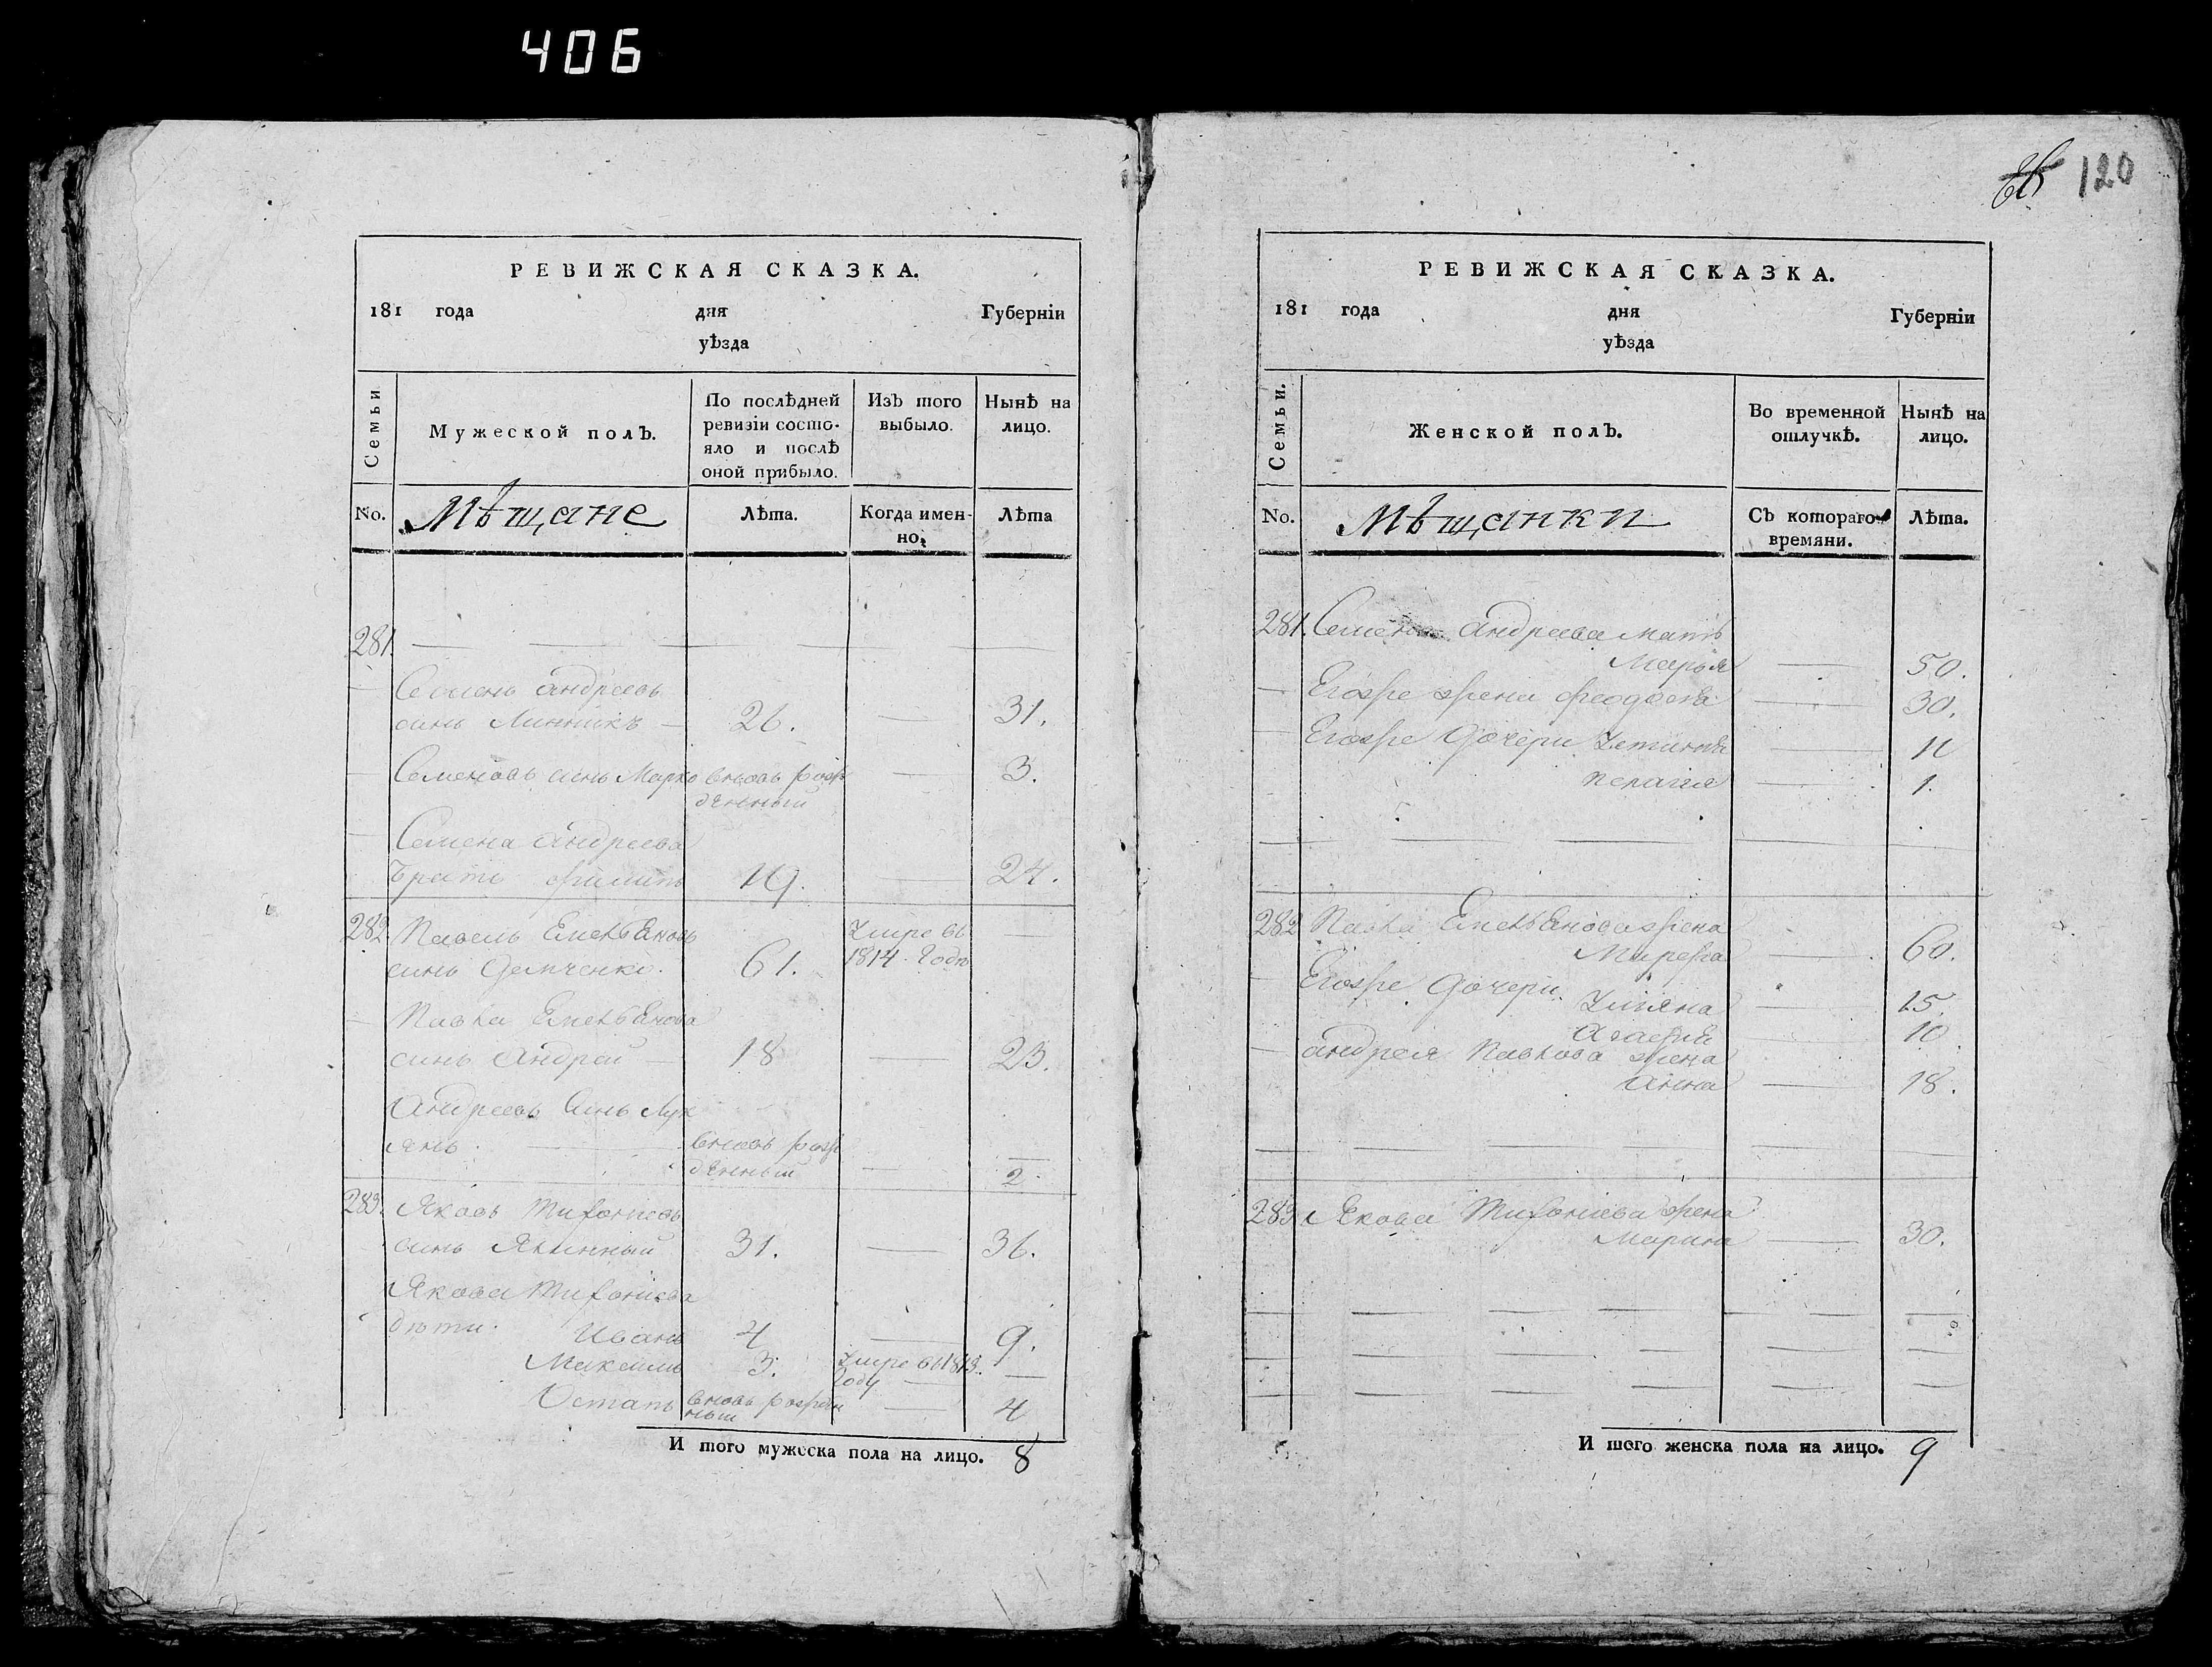 406
120
РЕВИЖСКАЯ СКАЗКА.
181 года дня Губерніи
уѣзда
Семьи
Мужеской полъ.
По послѣдней
ревизіи состо-
яло и послѣ
оной прибыло.
Изъ того
выбыло.
Нынѣ на
лицо.
No.
Мѣщане
Лѣта.
Когда имен-
но.
Лѣта
281.
Семенъ андреевъ
синъ Линникъ — 26. — 31.
Семеновъ синъ Марко вновь рож — 3.
денный
Семена андреева
братъ филипъ 19. — 24.
282. Павелъ Емельяновъ Умре въ —
синъ Демченко. 61. 1814. Годѣ
Павла Емельянова
синъ андрей — 18 — 23.
Андреевъ синъ Лук
янъ. вновь рож
денный — 2.
283. Яковъ Тифоніевъ
синъ 31. — 36.
Якова Тифоніева
дѣти. Иванъ 4 — 9.
Максимъ 3. Умре въ 1813. —
Году
Остапъ вновь рожден — 4
ный
И того мужеска пола на лицо. 8
РЕВИЖСКАЯ СКАЗКА.
181 года дня Губерніи
уѣзда
Семьи.
Женской полъ.
Во временной
отлучкѣ.
Нынѣ на
лицо.
No.
Мѣщанки
Съ котораго
времяни.
Лѣта.
281. Семена андреева мать
Марья — 50.
Егожъ жена феодосія — 30.
Егожъ дочери Устинія — 11
пелагія — 1.
282 Павла Емельянова жена
— 60.
Егожъ дочери
Уліяна — 15.
Агафія 10.
андрея Павлова жена
анна — 18.
283. Якова Тифоніева жена
Марина — 30.
И того женска пола на лицо. 9